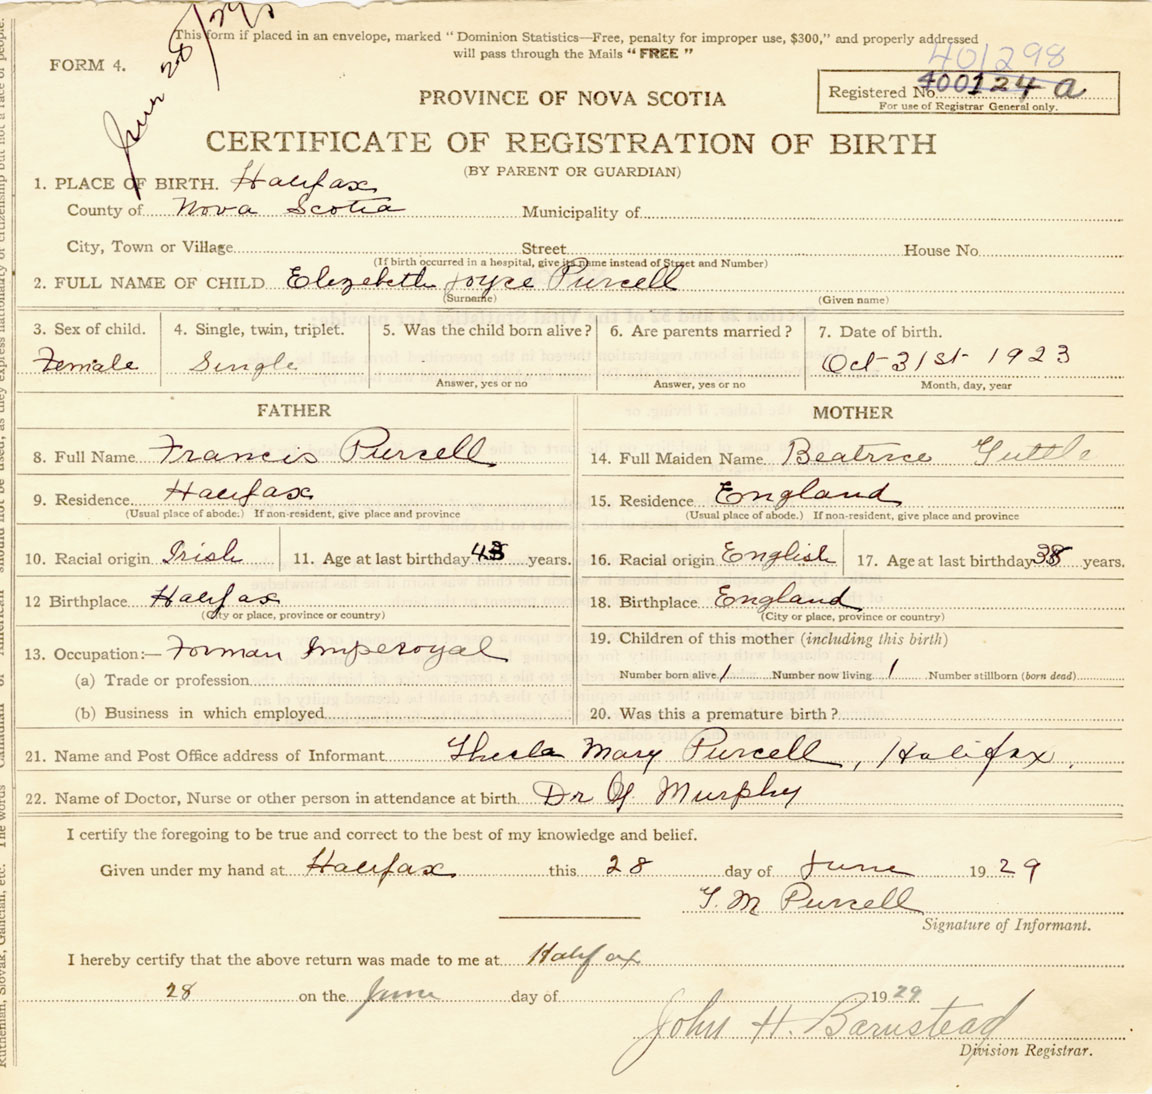 This form if placed in an envelope, marked " Dominion Statistics—Free, penalty for improper use, $300," and properly addressed
will pass through the Mails " FREE "
FORM 4.
June 28/29
401298
PROVINCE OF NOVA SCOTIA
Registered No. 400124 a
For use of Registrar General only.
CERTIFICATE OF REGISTRATION OF BIRTH
(BY PARENT OR GUARDIAN)
1. PLACE OF BIRTH. Halifax
County of Nova Scotia Municipality of
City, Town or Village Street House No
(If birth occurred in a hospital, give its name instead of Street and Number)
2. FULL NAME OF CHILD Elizebeth Joyce Purcell
(Surname) (Given name)
3. Sex of child. 4. Single, twin, triplet. 5. Was the child born alive? 6. Are parents married? 7. Date of birth.
Female Single Oct 31st 1923
Answer, yes or no Answer, yes or no Month, day, year
FATHER MOTHER
8. Full Name Francis Purcell 14. Full Maiden Name Beatrice
9. Residence Halifax 15. Residence England
(Usual place of abode.) If non-resident, give place and province (Usual place of abode.) If non-resident, give place and province
10. Racial origin Irish 11. Age at last birthday years. 16. Racial origin English 17. Age at last birthday 38 years.
12 Birthplace Halifax 18. Birthplace England
(City or place, province or country) (City or place, province or country)
13. Occupation:— Forman Imperoyal 19. Children of this mother (including this birth)
(a) Trade or profession Number born alive 1 Number now living 1 Number stillborn (born dead)
(b) Business in which employed 20. Was this a premature birth?
21. Name and Post Office address of Informant Thecla Mary Purcell, Halifax.
22. Name of Doctor, Nurse or other person in attendance at birth Dr G. Murphy
I certify the foregoing to be true and correct to the best of my knowledge and belief.
Given under my hand at Halifax this 28 day of June 1929
T. M Purcell
Signature of Informant.
I hereby certify that the above return was made to me at Halifax
28 on the June day of 1929
John H. Barnstead
Division Registrar.